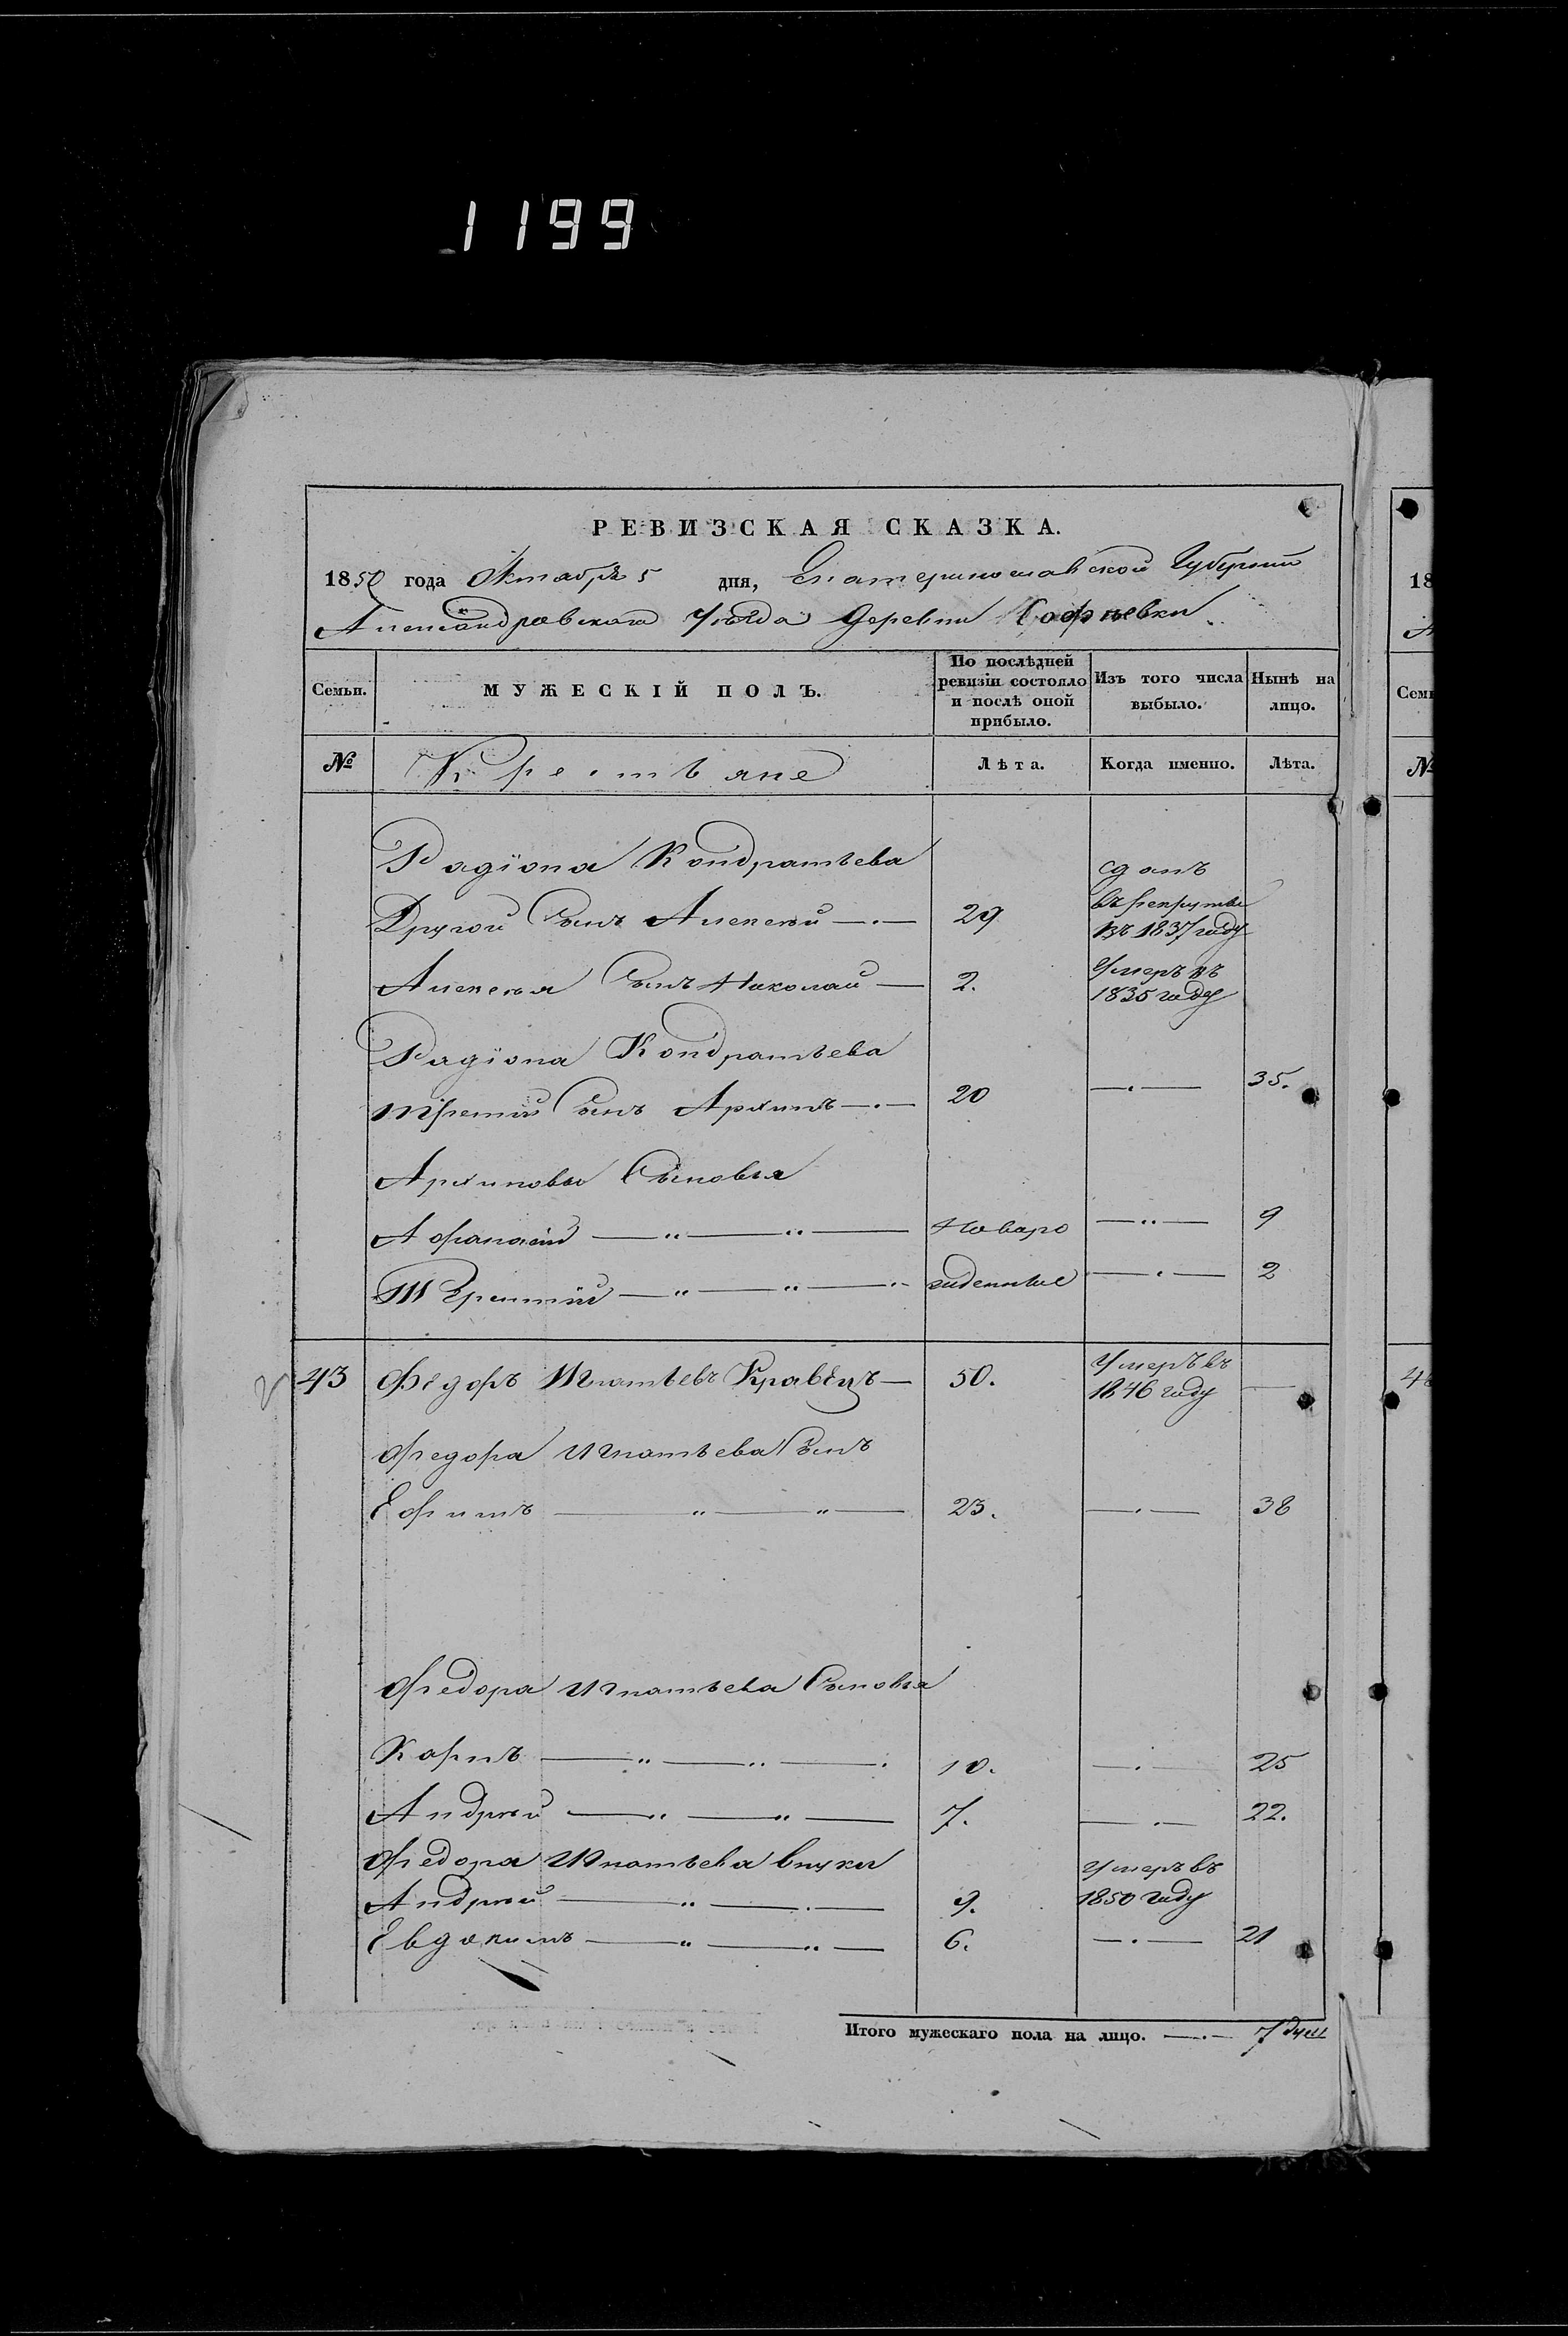 1199
РЕВИЗСКАЯ СКАЗКА.
1850 года Октября 5 дня, Екатеринославской Губернии
Александровскаго Уѣзда Деревни Софіевки
Семьи. МУЖЕСКІЙ ПОЛЪ. По послѣдней ревизіи состояло и послѣ оной прибыло. Изъ того числа выбыло. Нынѣ на лицо.
№ Крестьяне Лѣта. Когда именно. Лѣта.
Радіона Кондратьева
Другой Сынъ Алексѣй 29 сданъ въ рекруты въ 1837 году
Алексѣя Сынъ Николай 2. Умеръ въ 1835 году
Радіона Кондратьева
третій Сынъ Архипъ 20 35.
Архиповы Сыновья
Афанасій Новоро 9
Терентій жденные 2
43 Федоръ Игнатьевъ Кравецъ 50. Умеръ въ 1846 году
Федора Игнатьева Сынъ
Ефимъ 23. 38
Федора Игнатьева Сыновья
Карпъ 10. 25
Андрей 7. 22.
Федора Игнатьева внуки
Андрей 9. Умеръ въ 1850 году
Евдокимъ 6. 21
Итого мужескаго пола на лицо. 7 душ
18
Семь
№